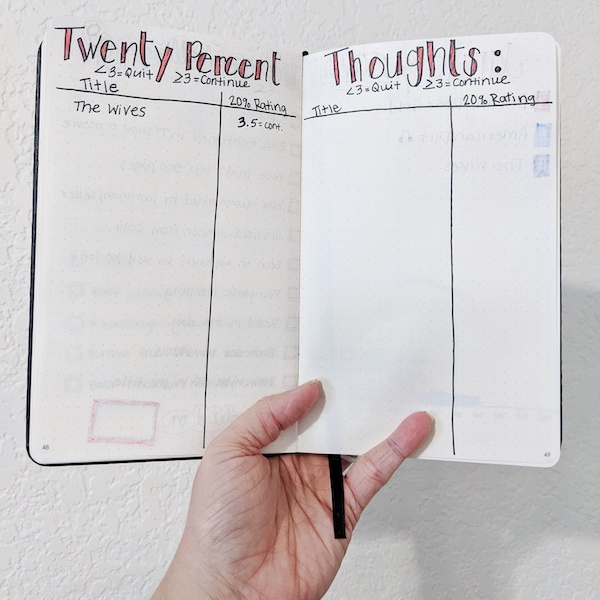 Twenty Percent
<3=Quit ≥3=Continue
Title 20% Rating
The Wives 3.5=cont.
48
Thoughts:
<3=Quit ≥3=Continue
Title 20% Rating
49